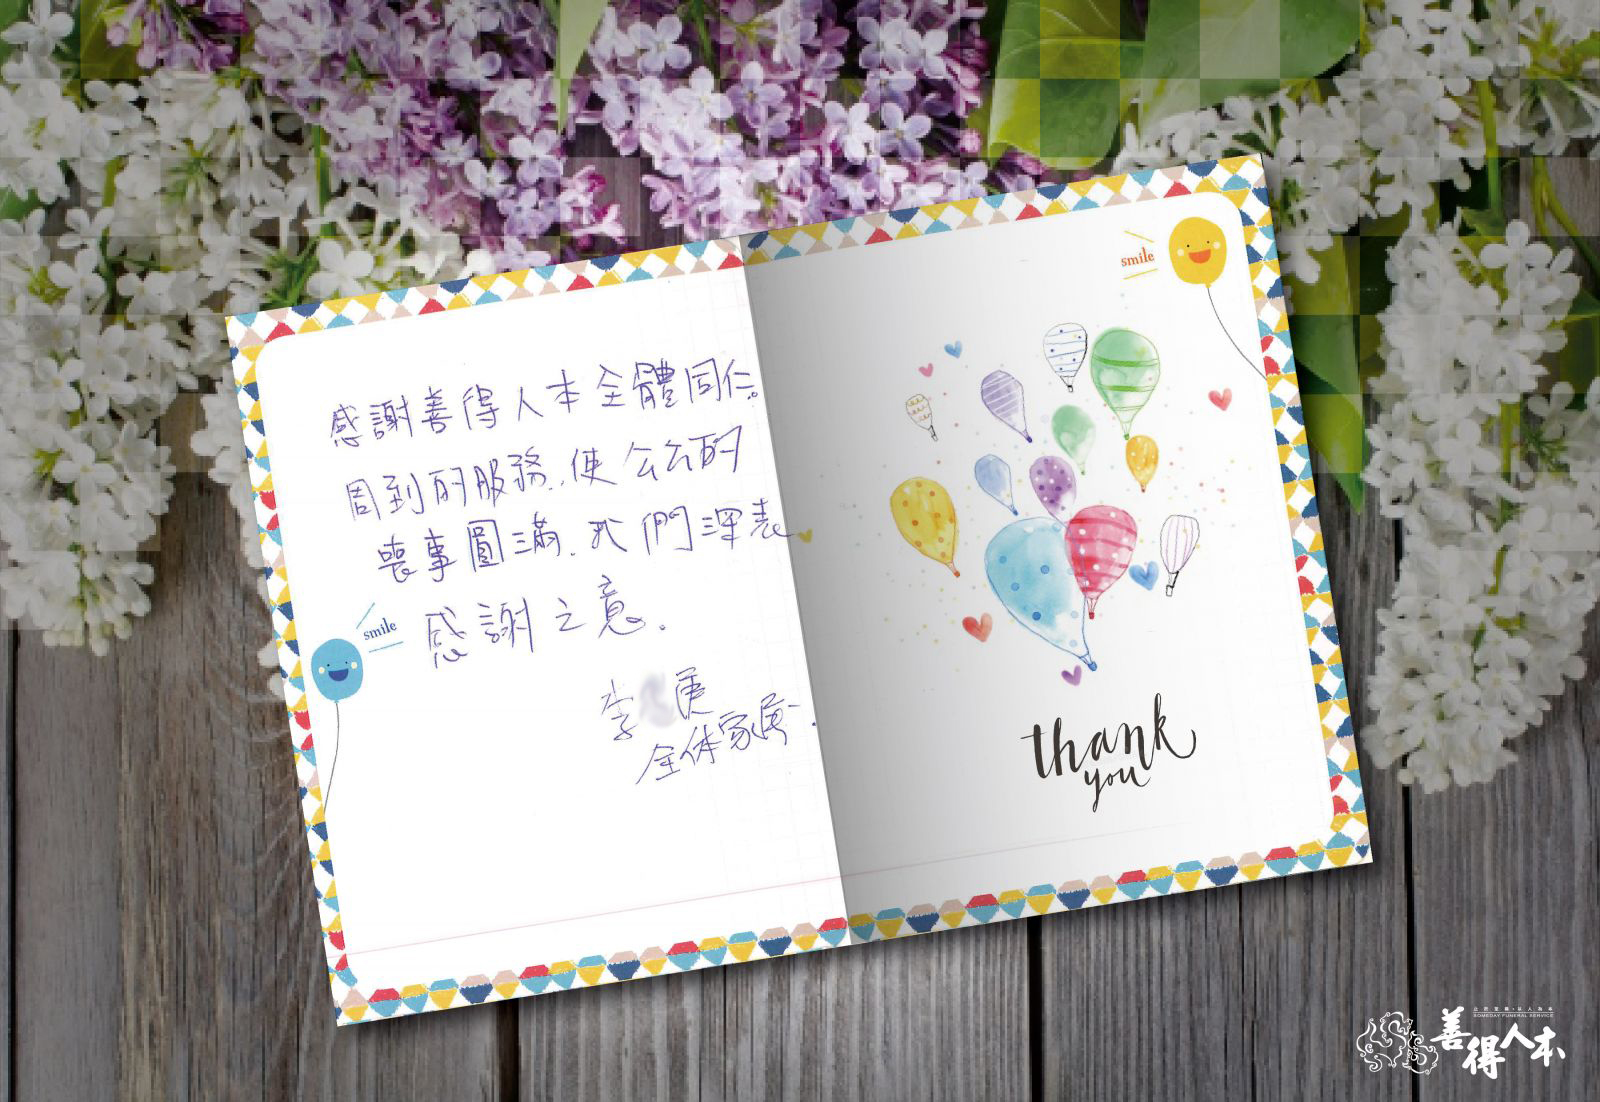 感謝善得人本全體同仁。
周到的服務.使公公的
喪事圓滿.我們深表
感謝之意.
李
全体家屬.
smile
smile
thank
you
SOMEDAY FUNERAL SERVICE
善得人本